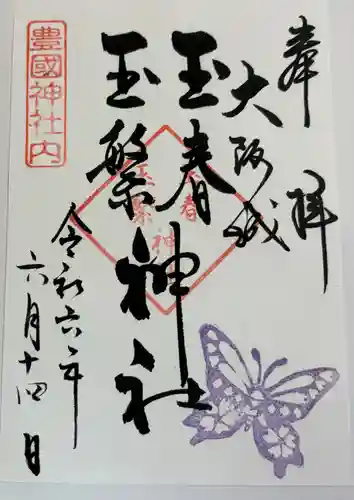 奉拝
大阪城
玉春
玉繁神社
令和六年
六月十四日
豊國神社内
玉春
玉繁
神